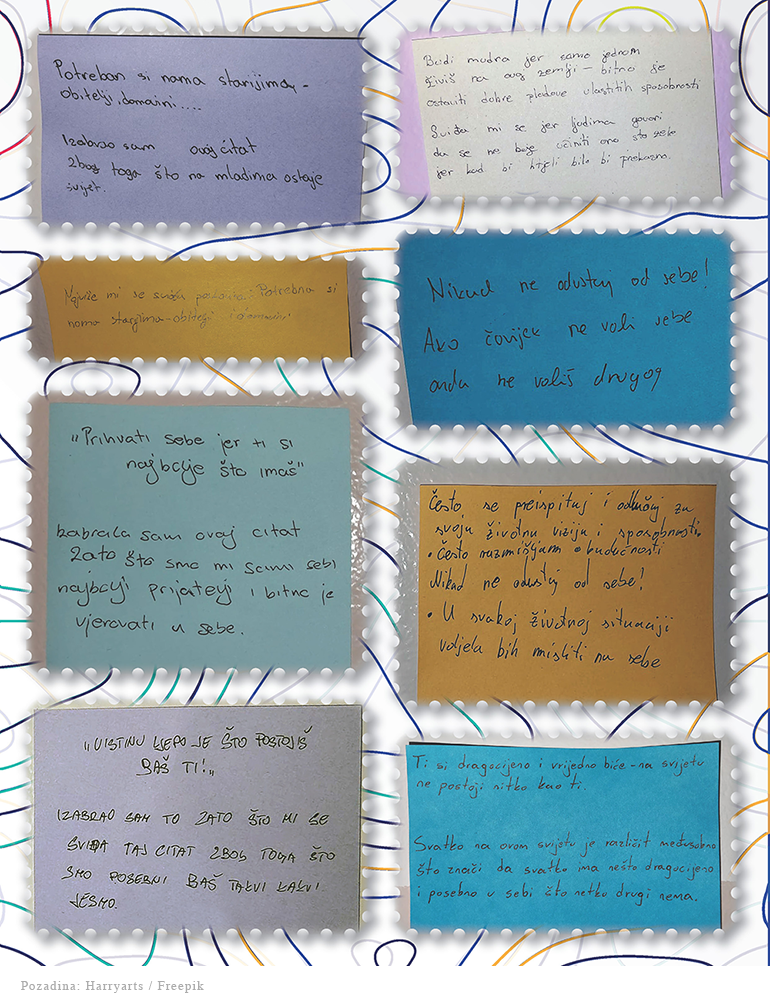 Potreban si nama starijima -
obitelji, domaini....
Izabrao sam ovaj citat
Zbog toga što na mladima ostaje
svijet.
Budi mudra jer samo jednom
živiš na ovoj zemlji – bitno je
ostaviti dobre plodove vlastitih sposobnosti
Sviđa mi se jer ljudima govori
da se ne boje učiniti ono što žele
jer kad bi htjeli bilo bi prekasno.
Najviše mi se sviđa Potrebna si
nama starijima-obitelji i
Nikad ne odustaj od sebe!
Ako čovijek ne voli sebe
onda ne voliš drugog
„Prihvati sebe jer ti si
najbolje što imaš"
Izabrala sam ovaj citat
Zato što smo mi sami sebi
najbolji prijatelji i bitno je
vjerovati u sebe.
Često se preispituj i odlučuj za
svoju životnu viziju i sposobnosti.
• Često razmišljam o budućnosti
Nikad ne odustaj od sebe!
• U svakoj životnoj situaciji
voljela bih misliti na sebe
„UISTINU LJEPO JE ŠTO POSTOJIŠ
BAŠ TI!„
IZABRAO SAM TO ZATO ŠTO MI SE
SVIĐA TAJ CITAT ZBOG TOGA ŠTO
SMO POSEBNI BAŠ TAKVI KAKVI
JESMO.
Ti si dragocijeno i vrijedno biće - na svijetu
ne postoji nitko kao ti.
Svatko na ovom svijetu je različit međusobno
što znači da svatko ima nešto dragocijeno
i posebno u sebi što netko drugi nema.
Pozadina: Harryarts / Freepik